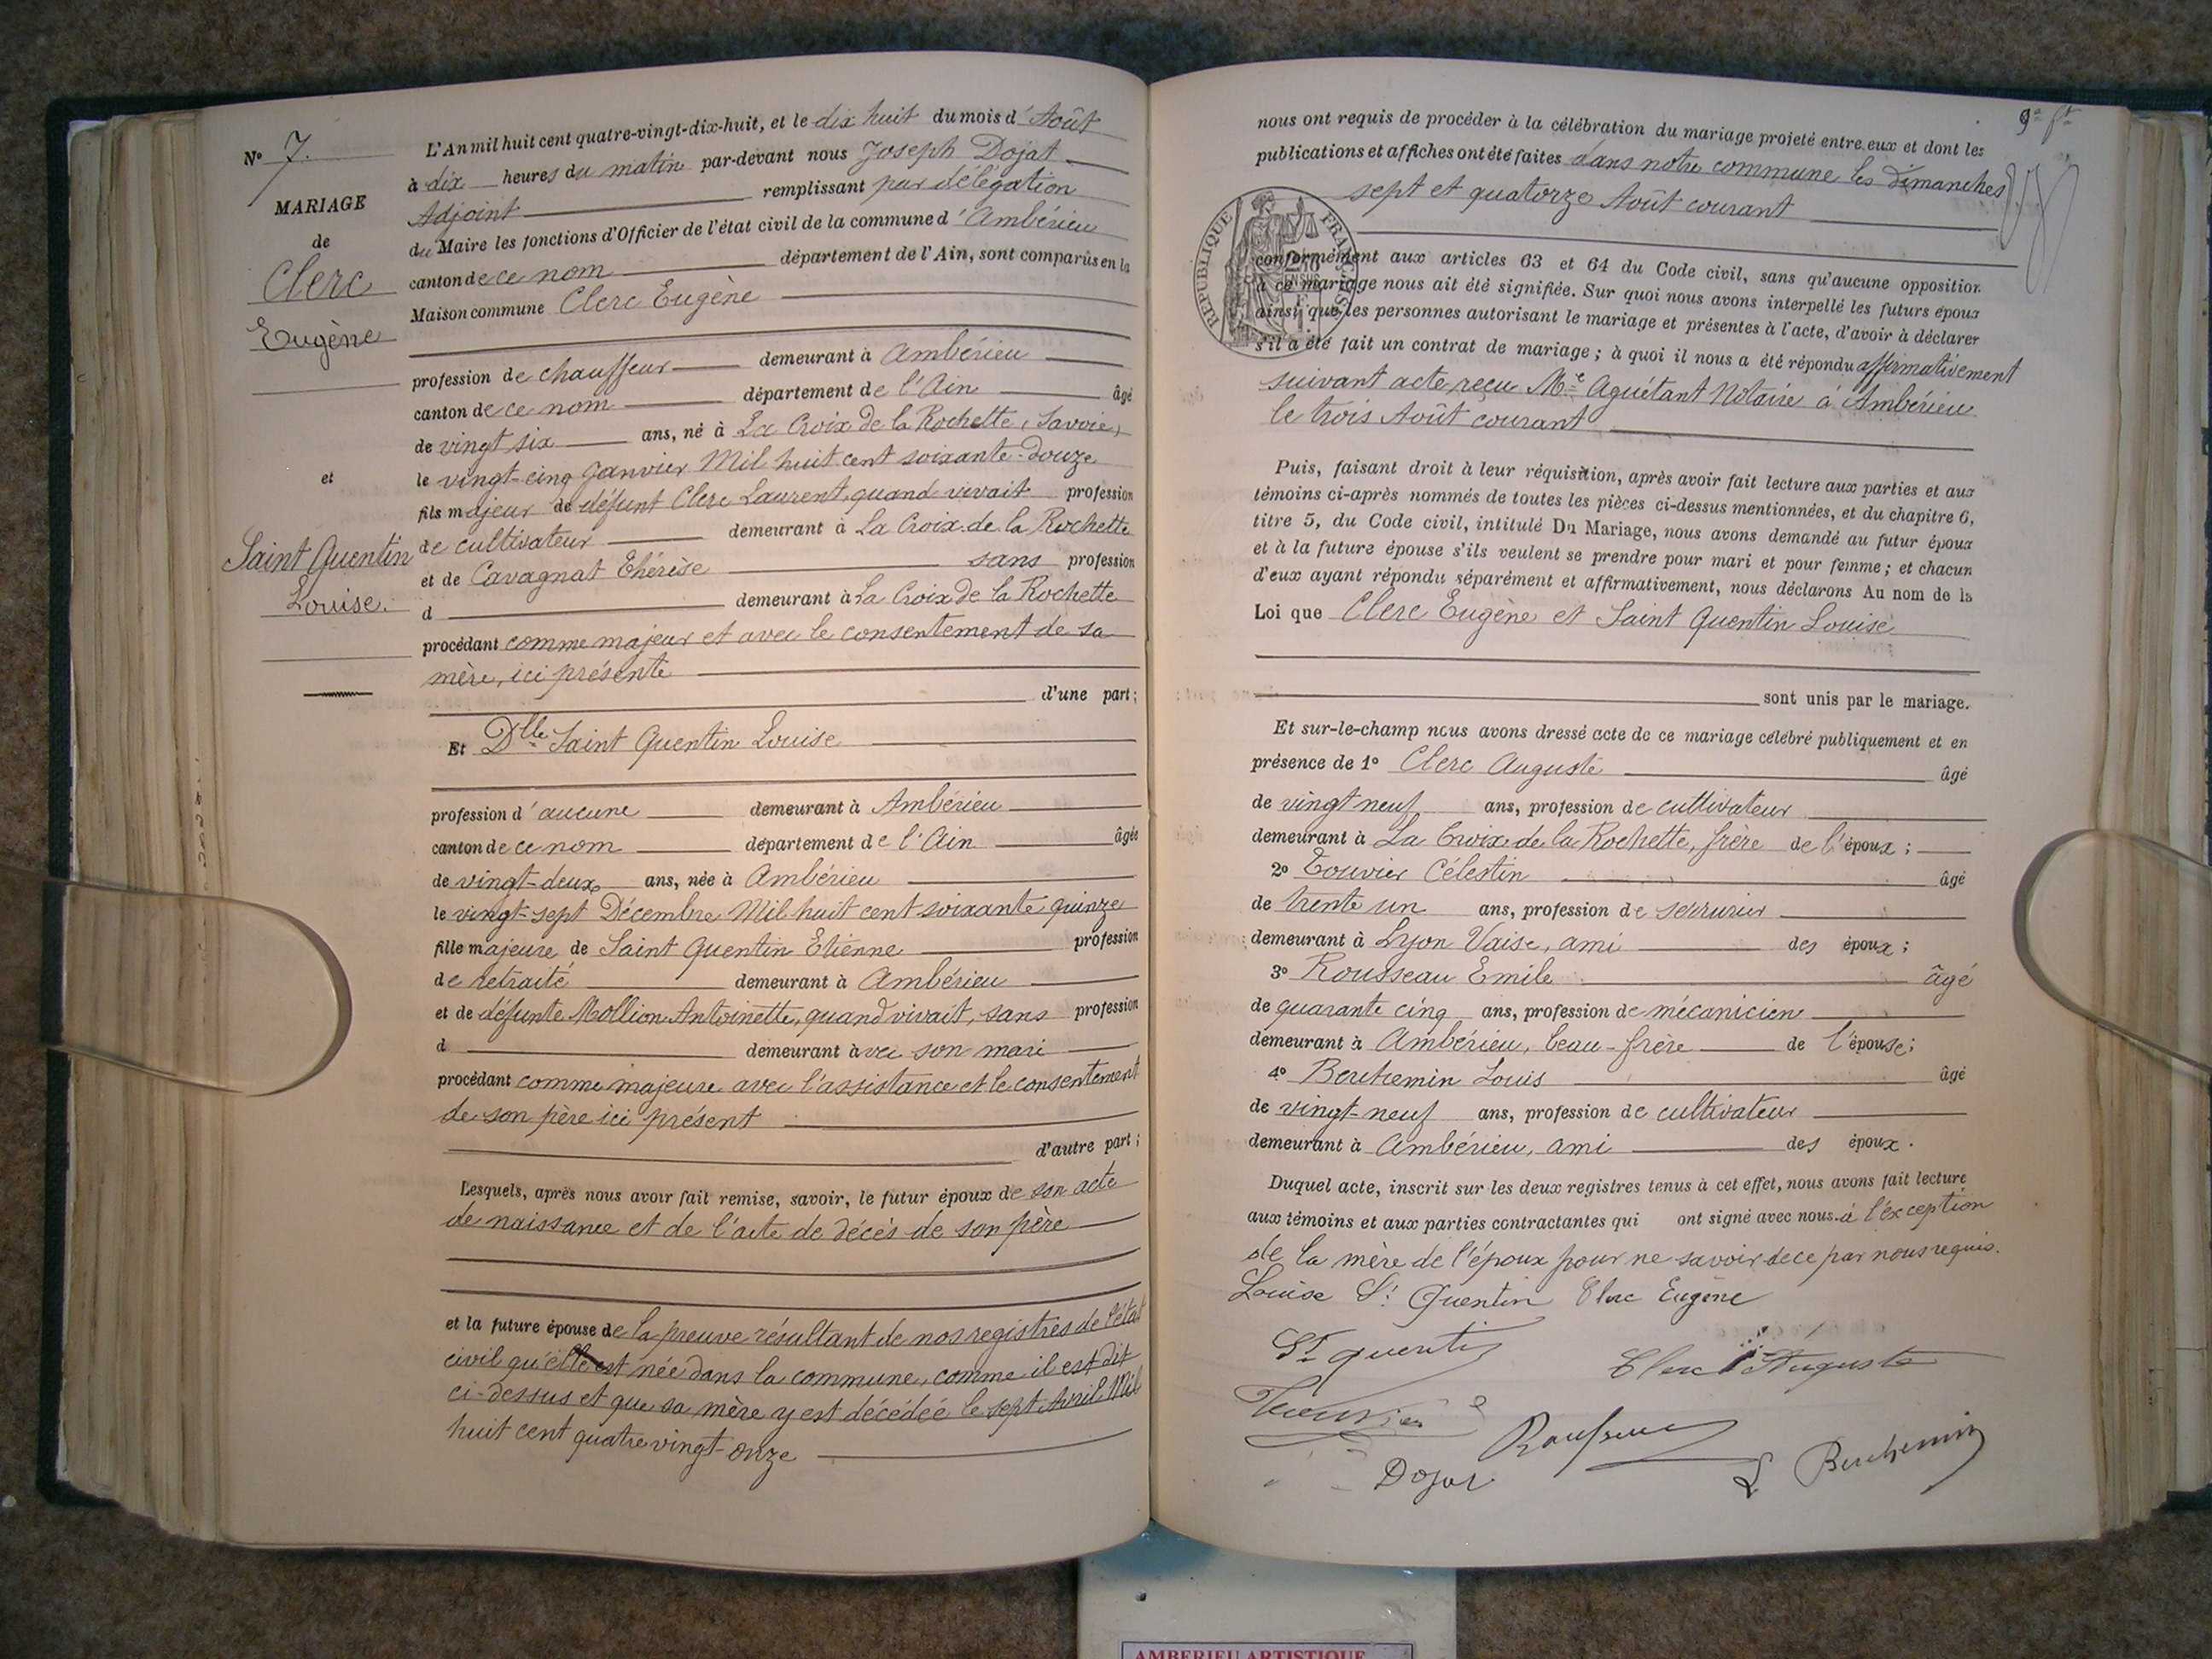 N° 7.
MARIAGE
de
Clerc
Eugène
et
Saint Quentin
Louise.
L'An mil huit cent quatre-vingt-dix-huit, et le dix huit du mois d'Août
à dix heures du matin par-devant nous Joseph Dojat
Adjoint remplissant par délégation
du Maire les fonctions d'Officier de l'état civil de la commune d'Ambérieu
canton de ce nom département de l'Ain, sont comparus en la
Maison commune Clerc Eugène
profession de chauffeur demeurant à Ambérieu
canton de ce nom département de l'Ain âgé
de vingt six ans, né à La Croix de la Rochette (Savoie)
le vingt-cinq Janvier Mil huit cent soixante-douze
fils majeur de défunt Clerc Laurent, quand vivait profession
de cultivateur demeurant à La Croix de la Rochette
et de Cavagnat Thérèse sans profession
d demeurant à La Croix de la Rochette
procédant comme majeur et avec le consentement de sa
mère, ici présente
d'une part;
Et Dlle Saint Quentin Louise
profession d'aucune demeurant à Ambérieu
canton de ce nom département de l'Ain âgée
de vingt-deux ans, née à Ambérieu
le vingt-sept Décembre Mil huit cent soixante quinze
fille majeure de Saint Quentin Etienne profession
de retraité demeurant à Ambérieu
et de défunte Mollion Antoinette, quand vivait, sans profession
d demeurant avec son mari
procédant comme majeure avec l'assistance et le consentement
de son père ici présent
d'autre part;
Lesquels, après nous avoir fait remise, savoir, le futur époux de son acte
de naissance et de l'acte de décès de son père
et la future épouse de la preuve résultant de nos registres de l'état
civil qu'elle est née dans la commune, comme il est dit
ci-dessus et que sa mère y est décédée le sept Avril Mil
huit cent quatre vingt-onze
nous ont requis de procéder à la célébration du mariage projeté entre eux et dont les
publications et affiches ont été faites dans notre commune les dimanches
sept et quatorze Août courant
RÉPUBLIQUE FRANÇAISE
conformément aux articles 63 et 64 du Code civil, sans qu'aucune opposition
à ce mariage nous ait été signifiée. Sur quoi nous avons interpellé les futurs époux
ainsi que les personnes autorisant le mariage et présentes à l'acte, d'avoir à déclarer
s'il a été fait un contrat de mariage; à quoi il nous a été répondu affirmativement
suivant acte reçu Me Aguétant Notaire à Ambérieu
le trois Août courant
Puis, faisant droit à leur réquisition, après avoir fait lecture aux parties et aux
témoins ci-après nommés de toutes les pièces ci-dessus mentionnées, et du chapitre 6,
titre 5, du Code civil, intitulé Du Mariage, nous avons demandé au futur époux
et à la future épouse s'ils veulent se prendre pour mari et pour femme; et chacun
d'eux ayant répondu séparément et affirmativement, nous déclarons Au nom de la
Loi que Clerc Eugène et Saint Quentin Louise
sont unis par le mariage.
Et sur-le-champ nous avons dressé acte de ce mariage célébré publiquement et en
présence de 1° Clerc Auguste âgé
de vingt neuf ans, profession de cultivateur
demeurant à La Croix de la Rochette, frère de l'époux;
2° Touvier Célestin âgé
de trente un ans, profession de serrurier
demeurant à Lyon Vaise, ami des époux;
3° Rousseau Emile âgé
de quarante cinq ans, profession de mécanicien
demeurant à Ambérieu, beau-frère de l'épouse;
4° Berthemin Louis âgé
de vingt-neuf ans, profession de cultivateur
demeurant à Ambérieu, ami des époux.
Duquel acte, inscrit sur les deux registres tenus à cet effet, nous avons fait lecture
aux témoins et aux parties contractantes qui ont signé avec nous à l'exception
de la mère de l'époux pour ne savoir de ce par nous requis.
Louise St Quentin Clerc Eugène
St quentin
Clerc Auguste
Touvier
Rousseau
Dojat
L Berthemin
AMBERIEU ARTISTIQUE